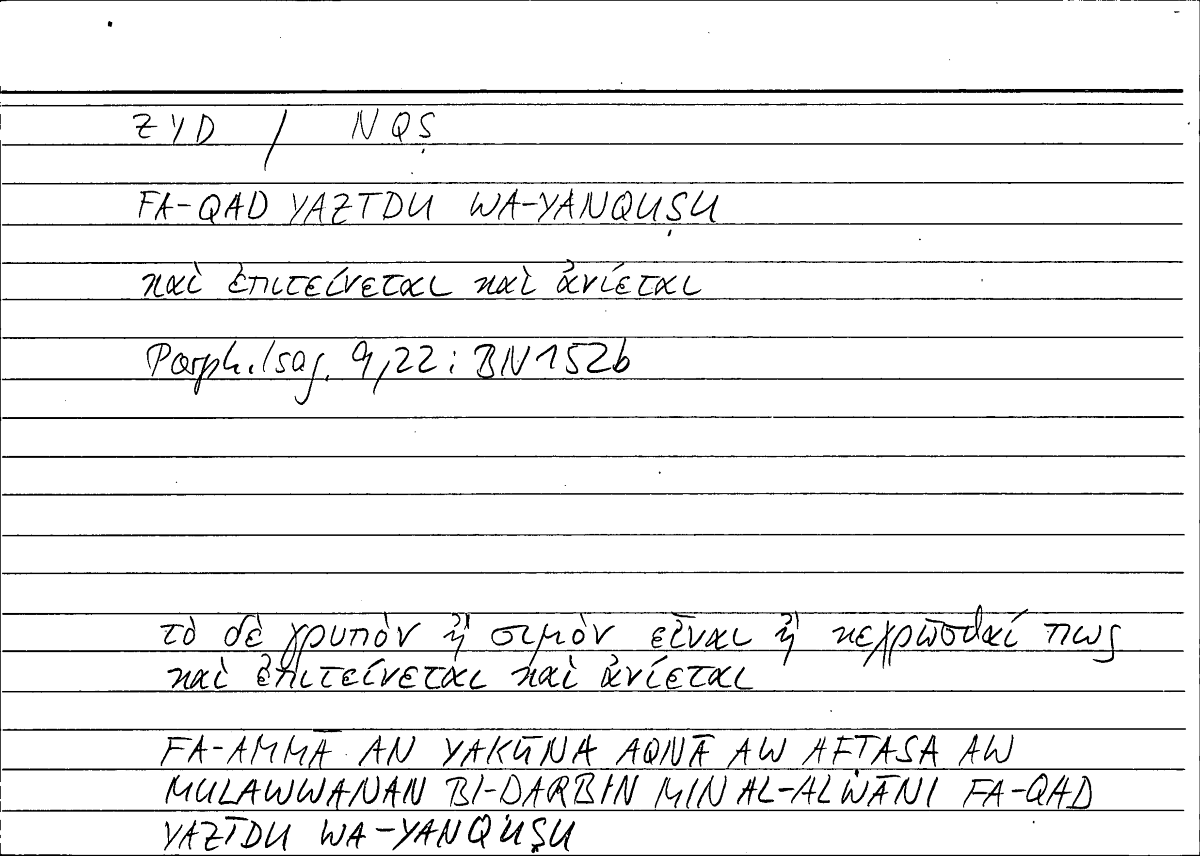 ZYD / NQṢ
FA-QAD YAZĪDU WA-YANQUṢU
καὶ ἐπιτείνεται καὶ ἀνίεται
Porph. Isag. 9,22 : BN 152b
τὸ δὲ γρυπὸν ἢ σιμὸν εἶναι ἢ κεχρῶσθαί πως
καὶ ἐπιτείνεται καὶ ἀνίεται
FA-AMMĀ AN YAKŪNA AQNĀ AW AFTASA AW
MULAWWANAN BI-DARBIN MIN AL-ALWĀNI FA-QAD
YAZĪDU WA-YANQUṢU